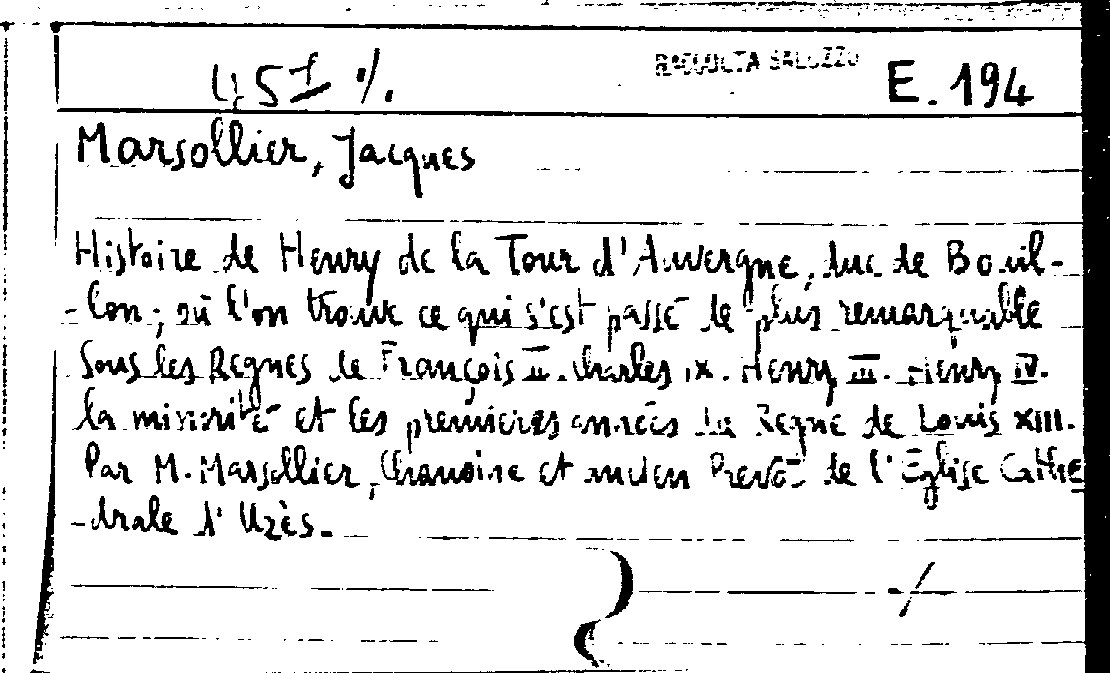 451 %. RACCOLTA SALUZZO E. 194
Marsollier, Jacques
Histoire de Henry de la Tour d'Auvergne, duc de Bouil-
-lon; où l'on trouve ce qui s'est passé de plus remarquable
sous les Regnes de François II. Charles IX. Henry III. Henry IV.
la minorité et les premieres années du Regne de Louis XIII.
Par M. Marsollier, Chanoine et ancien Prevôt de l'Eglise Cathe
-drale d'Uzès.